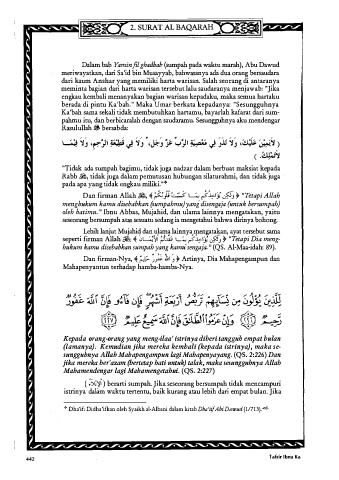 2. SURAT AL BAQARAH
Dalam bab Yamin fil ghadhab (sumpah pada waktu marah), Abu Dawud
meriwayatkan, dari Sa'id bin Musayyab, bahwasanya ada dua orang bersaudara
dari kaum Anshar yang memiliki harta warisan. Salah seorang di antaranya
meminta bagian dari harta warisan tersebut lalu saudaranya menjawab: "Jika
engkau kembali menanyakan bagian warisan kepadaku, maka semua hartaku
berada di pintu Ka'bah." Maka Umar berkata kepadanya: "Sesungguhnya
Ka'bah sama sekali tidak membutuhkan hartamu, bayarlah kafarat dari sum-
pahmu itu, dan berbicaralah dengan saudaramu. Sesungguhnya aku mendengar
Rasulullah ﷺ bersabda:
( لاَ يَمِيْنَ عَلَيْكَ، وَلاَ نَذْرَ فِي مَعْصِيَةِ الرَّبِّ عَزَّ وَجَلَّ، وَلاَ فِي قَطِيْعَةِ الرَّحِمِ، وَلاَ فِيْمَـا
لاَ تَمْلِكُ. )
"Tidak ada sumpah bagimu, tidak juga nadzar dalam berbuat maksiat kepada
Rabb ﷻ, tidak juga dalam pemutusan hubungan silaturahmi, dan tidak juga
pada apa yang tidak engkau miliki."*
Dan firman Allah ﷻ, ﴿ وَلَكِن يُؤَاخِذُكُم بِمَا كَسَبَتْ قُلُوبُكُمْ ﴾ "Tetapi Allah
menghukum kamu disebabkan (sumpahmu) yang disengaja (untuk bersumpah)
oleh hatimu." Ibnu Abbas, Mujahid, dan ulama lainnya mengatakan, yaitu
seseorang bersumpah atas sesuatu sedang ia mengetahui bahwa dirinya bohong.
Lebih lanjut Mujahid dan ulama lainnya mengatakan, ayat tersebut sama
seperti firman Allah ﷻ, ﴿ وَلَكِن يُؤَاخِذُكُم بِمَا عَقَّدتُّمُ الْأَيْمَانَ ﴾ "Tetapi Dia meng-
hukum kamu disebabkan sumpah yang kamu sengaja." (QS. Al-Maa-idah: 89).
Dan firman-Nya, ﴿ وَاللَّهُ غَفُورٌ حَلِيمٌ ﴾ Artinya, Dia Mahapengampun dan
Mahapenyantun terhadap hamba-hamba-Nya.
لِّلَّذِينَ يُؤْلُونَ مِن نِّسَائِهِمْ تَرَبُّصُ أَرْبَعَةِ أَشْهُرٍ فَإِن فَاءُو فَإِنَّ اللَّهَ غَفُورٌ
رَّحِيمٌ ﴿٢٢٦﴾ وَإِنْ عَزَمُوا الطَّلَاقَ فَإِنَّ اللَّهَ سَمِيعٌ عَلِيمٌ ﴿٢٢٧﴾
Kepada orang-orang yang meng-ilaa' istrinya diberi tangguh empat bulan
(lamanya). Kemudian jika mereka kembali (kepada istrinya), maka se-
sungguhnya Allah Mahapengampun lagi Mahapenyayang. (QS. 2:226) Dan
jika mereka ber'azam (bertetap hati untuk) talak, maka sesungguhnya Allah
Mahamendengar lagi Mahamengetahui. (QS. 2:227)
( الْإِيْلاَءُ ) berarti sumpah. Jika seseorang bersumpah tidak mencampuri
istrinya dalam waktu tertentu, baik kurang atau lebih dari empat bulan. Jika
* Dha'if: Didha'ifkan oleh Syaikh al-Albani dalam kitab Dha'iif Abi Dawud (1/713).
442
Tafsir Ibnu Ka